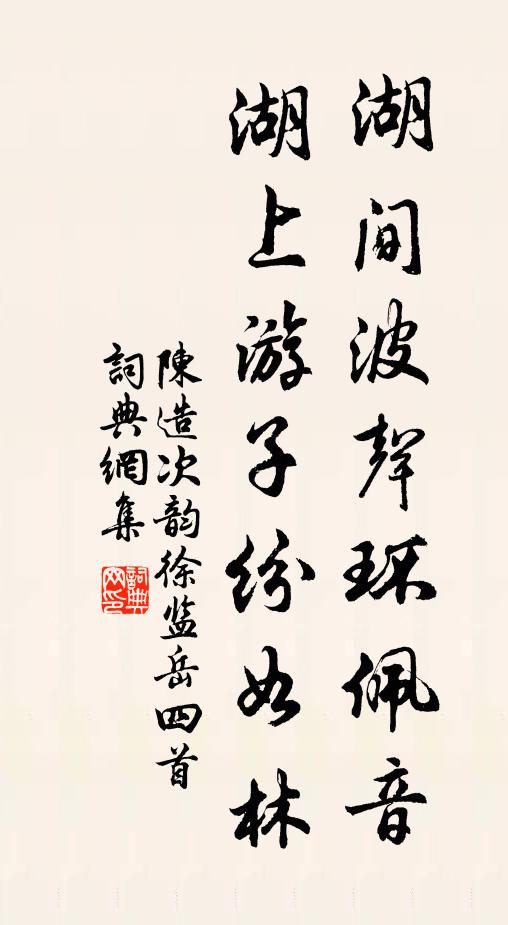 湖間波聲環佩音
湖上游子紛如林
陳造次韵徐监岳四首
詞典網集
詞典
网印